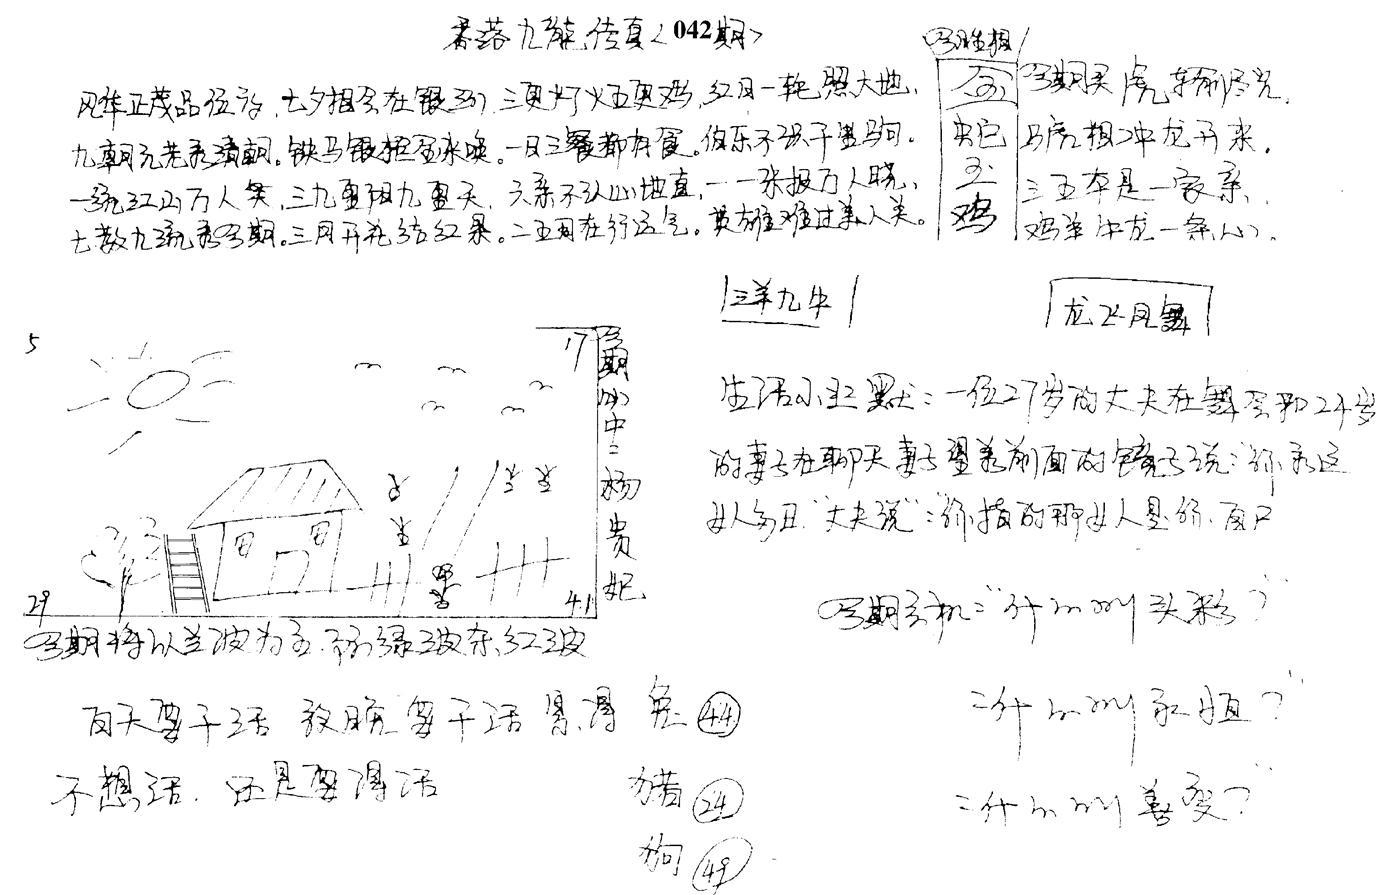 九龍传真<042期>
风华正茂品位高,七夕相会在银河,三更灯火五更鸡,红日一轮照大地,
九朝元老看清朝。铁马银枪金水唤。一日三餐都有食。伯乐不识千里马。
一统江山万人笑,三九重阳九重天,六亲不认心地直,一一张报万人晓,
七数九流看今期。三月开花结红果。二五周在行运气。英雄难过美人关。
蛇
鸡
马虎相冲龙开来,
三五本是一家亲,
鸡羊牛龙一条心。
三羊九牛
龙飞凤舞
5
17
29
41
期必中:杨贵妃
今期将以兰波为主,防绿波杂红波
生活小幽默:一位27岁的丈夫在舞会和24岁
的妻子在聊天妻子望着前面的镜子说:你看这
女人多丑"丈夫说":你指的那女人是你自己
今期玄机:"什么叫头彩?"
:什么叫永恒?"
:什么叫善变?"
白天要干活 夜晚要干活 累得 兔 44
不想活.还是要得活
猪 24
狗 49